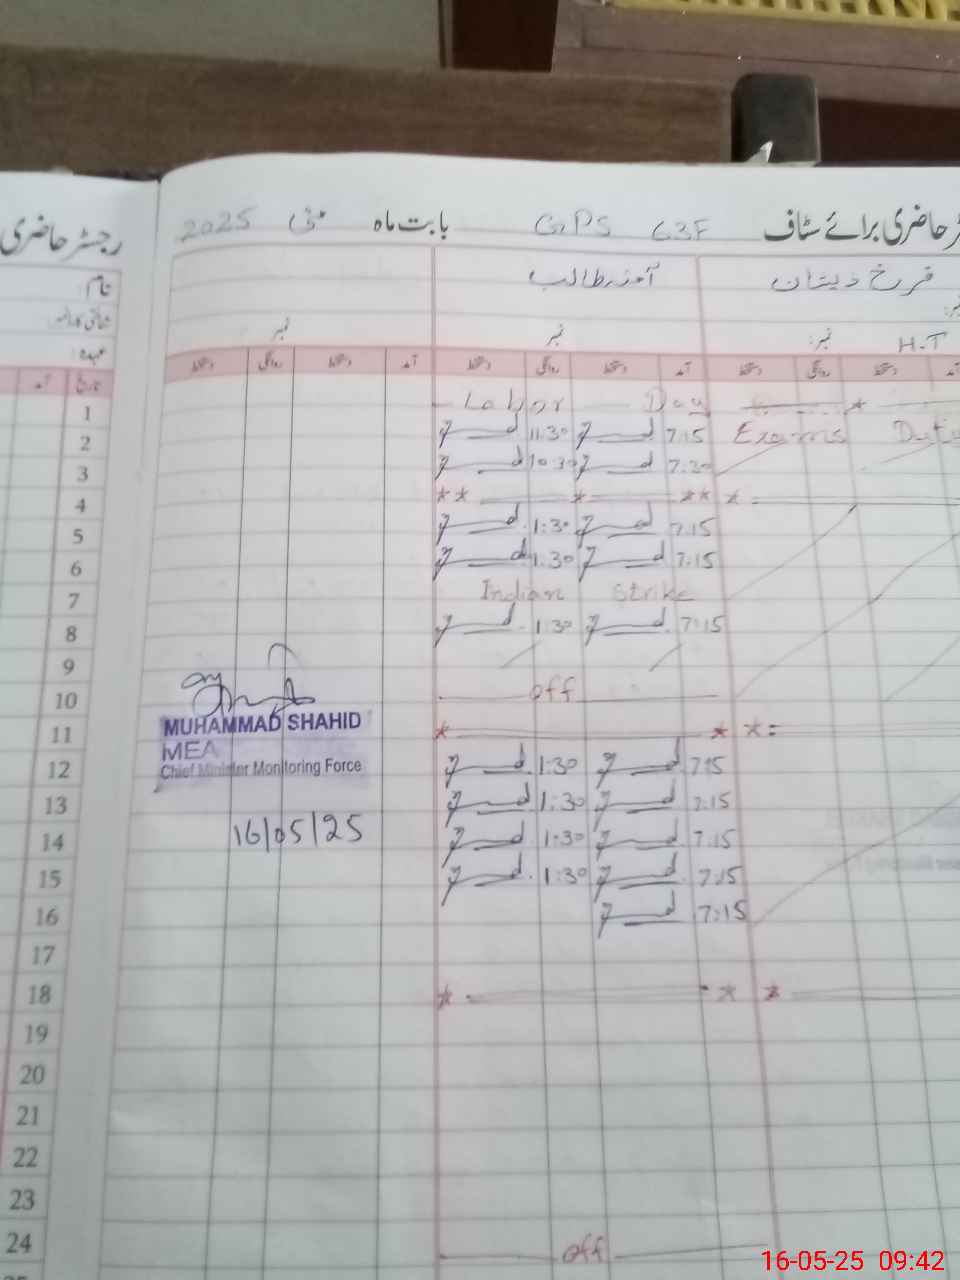 رجسٹر حاضری
نام:
شناختی کارڈ نمبر:
عہدہ:
تاریخ آمد
حاضری برائے سٹاف GPS 63F بابت ماہ مئی 2025
فرخ دیشان آمنہ طالب
H.T نمبر: نمبر نمبر
آمد دستخط روانگی دستخط آمد دستخط روانگی دستخط آمد دستخط روانگی دستخط
1 Labor Day *
2 11:30 7:15 Exams Duty
3 10:30 7:20
4 ** * ** *
5 1:30 7:15
6 1:30 7:15
7 Indian Strike
8 1:30 7:15
9
10 off
11 * * *
12 1:30 7:15
13 1:30 7:15
14 1:30 7:15
15 1:30 7:15
16 7:15
17
18 * * *
19
20
21
22
23
24 off
MUHAMMAD SHAHID
MEA
Chief Minister Monitoring Force
16/05/25
16-05-25 09:42